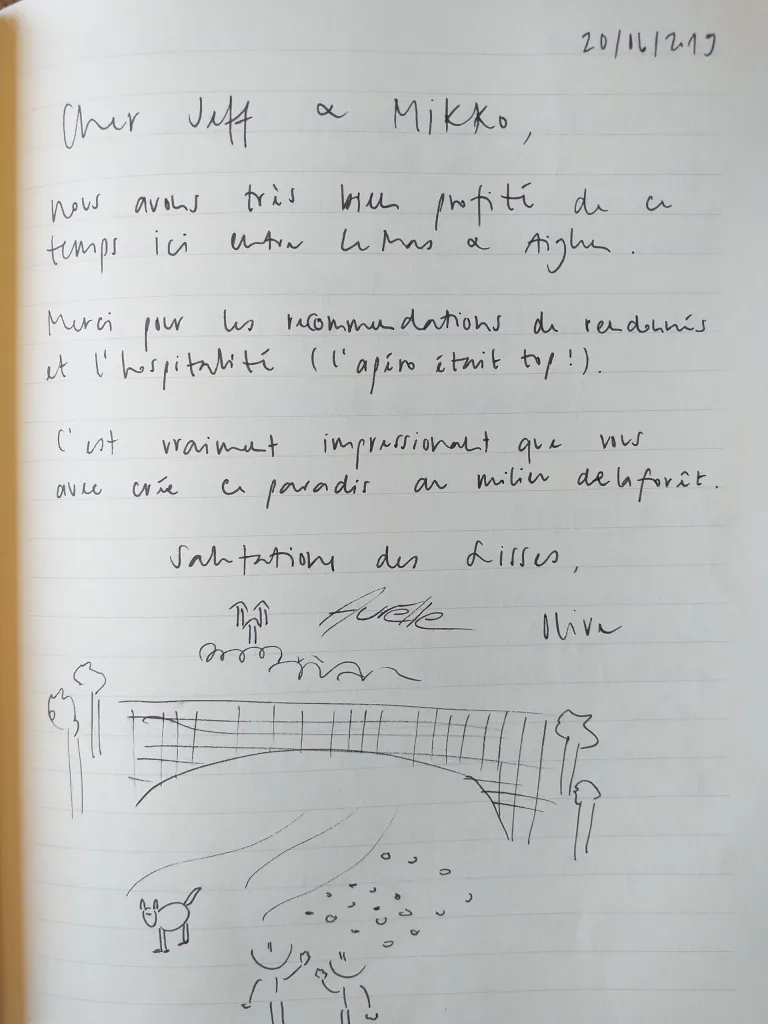 Cher Jeff & Mikko,
nous avons très bien profité de ce
temps ici entre Le Mas & Aiglun.
Merci pour les recommendations de rendonnés
et l'hospitalité (l'apéro était top!).
C'est vraiment impressionant que vous
avec crée ce paradis au milieu de la forêt.
Salutations des Lisses,
Aurelle Oliver